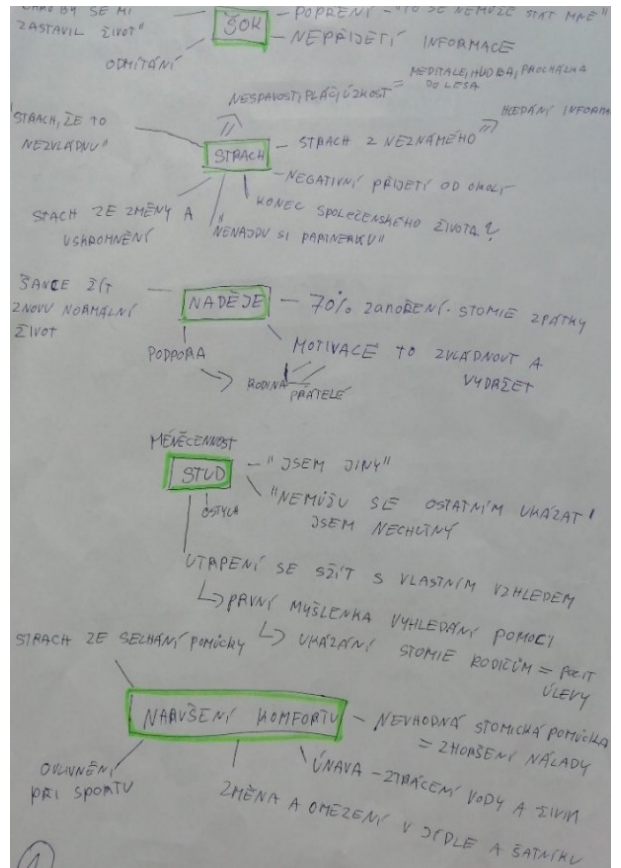 BY SE MI
ZASTAVIL ŽIVOT"
ŠOK
- POPŘENÍ - "TO SE NEMŮŽE STÁT MNĚ"
- NEPŘIJETÍ INFORMACE
ODMÍTÁNÍ
NESPAVOST, PLÁČ, ÚZKOST = MEDITACE, HUDBA, PROCHÁZKA
DO LESA
"STRACH, ŽE TO
NEZVLÁDNU"
STRACH
- STRACH Z NEZNÁMÉHO
HLEDÁNÍ INFORMA
- NEGATIVNÍ PŘIJETÍ OD OKOLÍ
KONEC SPOLEČENSKÉHO ŽIVOTA?
STACH ZE ZMĚNY A
USKROMNĚNÍ
"NENAJDU SI PARTNERKU"
ŠANCE ŽÍT
ZNOVU NORMÁLNÍ
ŽIVOT
NADĚJE
- 70% ZANOŘENÍ STOMIE ZPÁTKY
PODPORA
MOTIVACE TO ZVLÁDNOUT A
VYDRŽET
RODINA
PŘÁTELÉ
MÉNĚCENNOST
STUD
- "JSEM JINÝ"
"NEMŮŽU SE OSTATNÍM UKÁZAT"
JSEM NECHUTNÝ
OSTYCH
UTRPENÍ SE SŽÍT S VLASTNÍM VZHLEDEM
PRVNÍ MYŠLENKA VYHLEDÁNÍ POMOCI
UKÁZÁNÍ STOMIE RODIČŮM = POCIT
ÚLEVY
STRACH ZE SELHÁNÍ POMŮCKY
NARUŠENÍ KOMFORTU
- NEVHODNÁ STOMICKÁ POMŮCKA
= ZHORŠENÍ NÁLADY
OVLIVNĚNÍ
PŘI SPORTU
ÚNAVA - ZTRÁCENÍ VODY A ŽIVIN
ZMĚNA A OMEZENÍ V JÍDLE A ŠATNÍKU
1